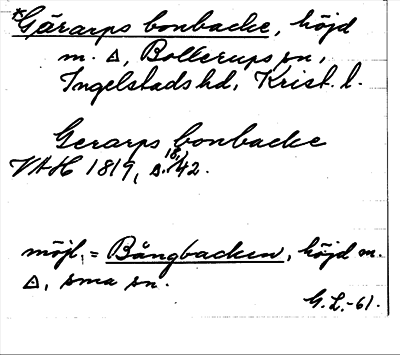 *Gärarps bonbacke, höjd
m. △, Bollerups sn,
Ingelstads hd, Krist. l.
Gerarps bonbacke
VAH 1819, s. 42.
möjl. = Bångbacken, höjd m.
△, sma sn.
G. L. -61.